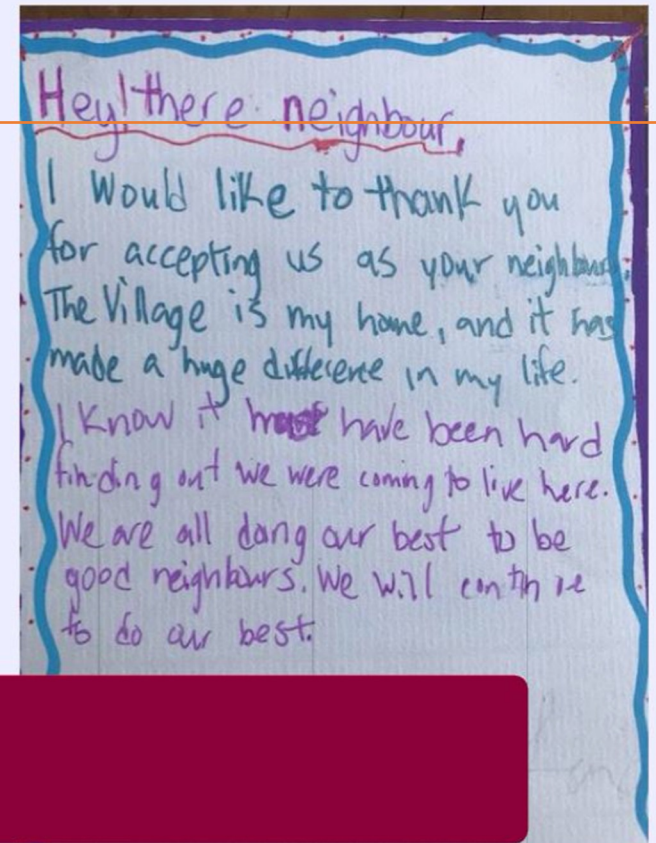 Hey! there neighbour,
I Would like to thank you
for accepting us as your neighbours.
The Village is my home, and it has
made a huge difference in my life.
I Know it must have been hard
finding out we were coming to live here.
We are all doing our best to be
good neighbours. We will continue
to do our best.